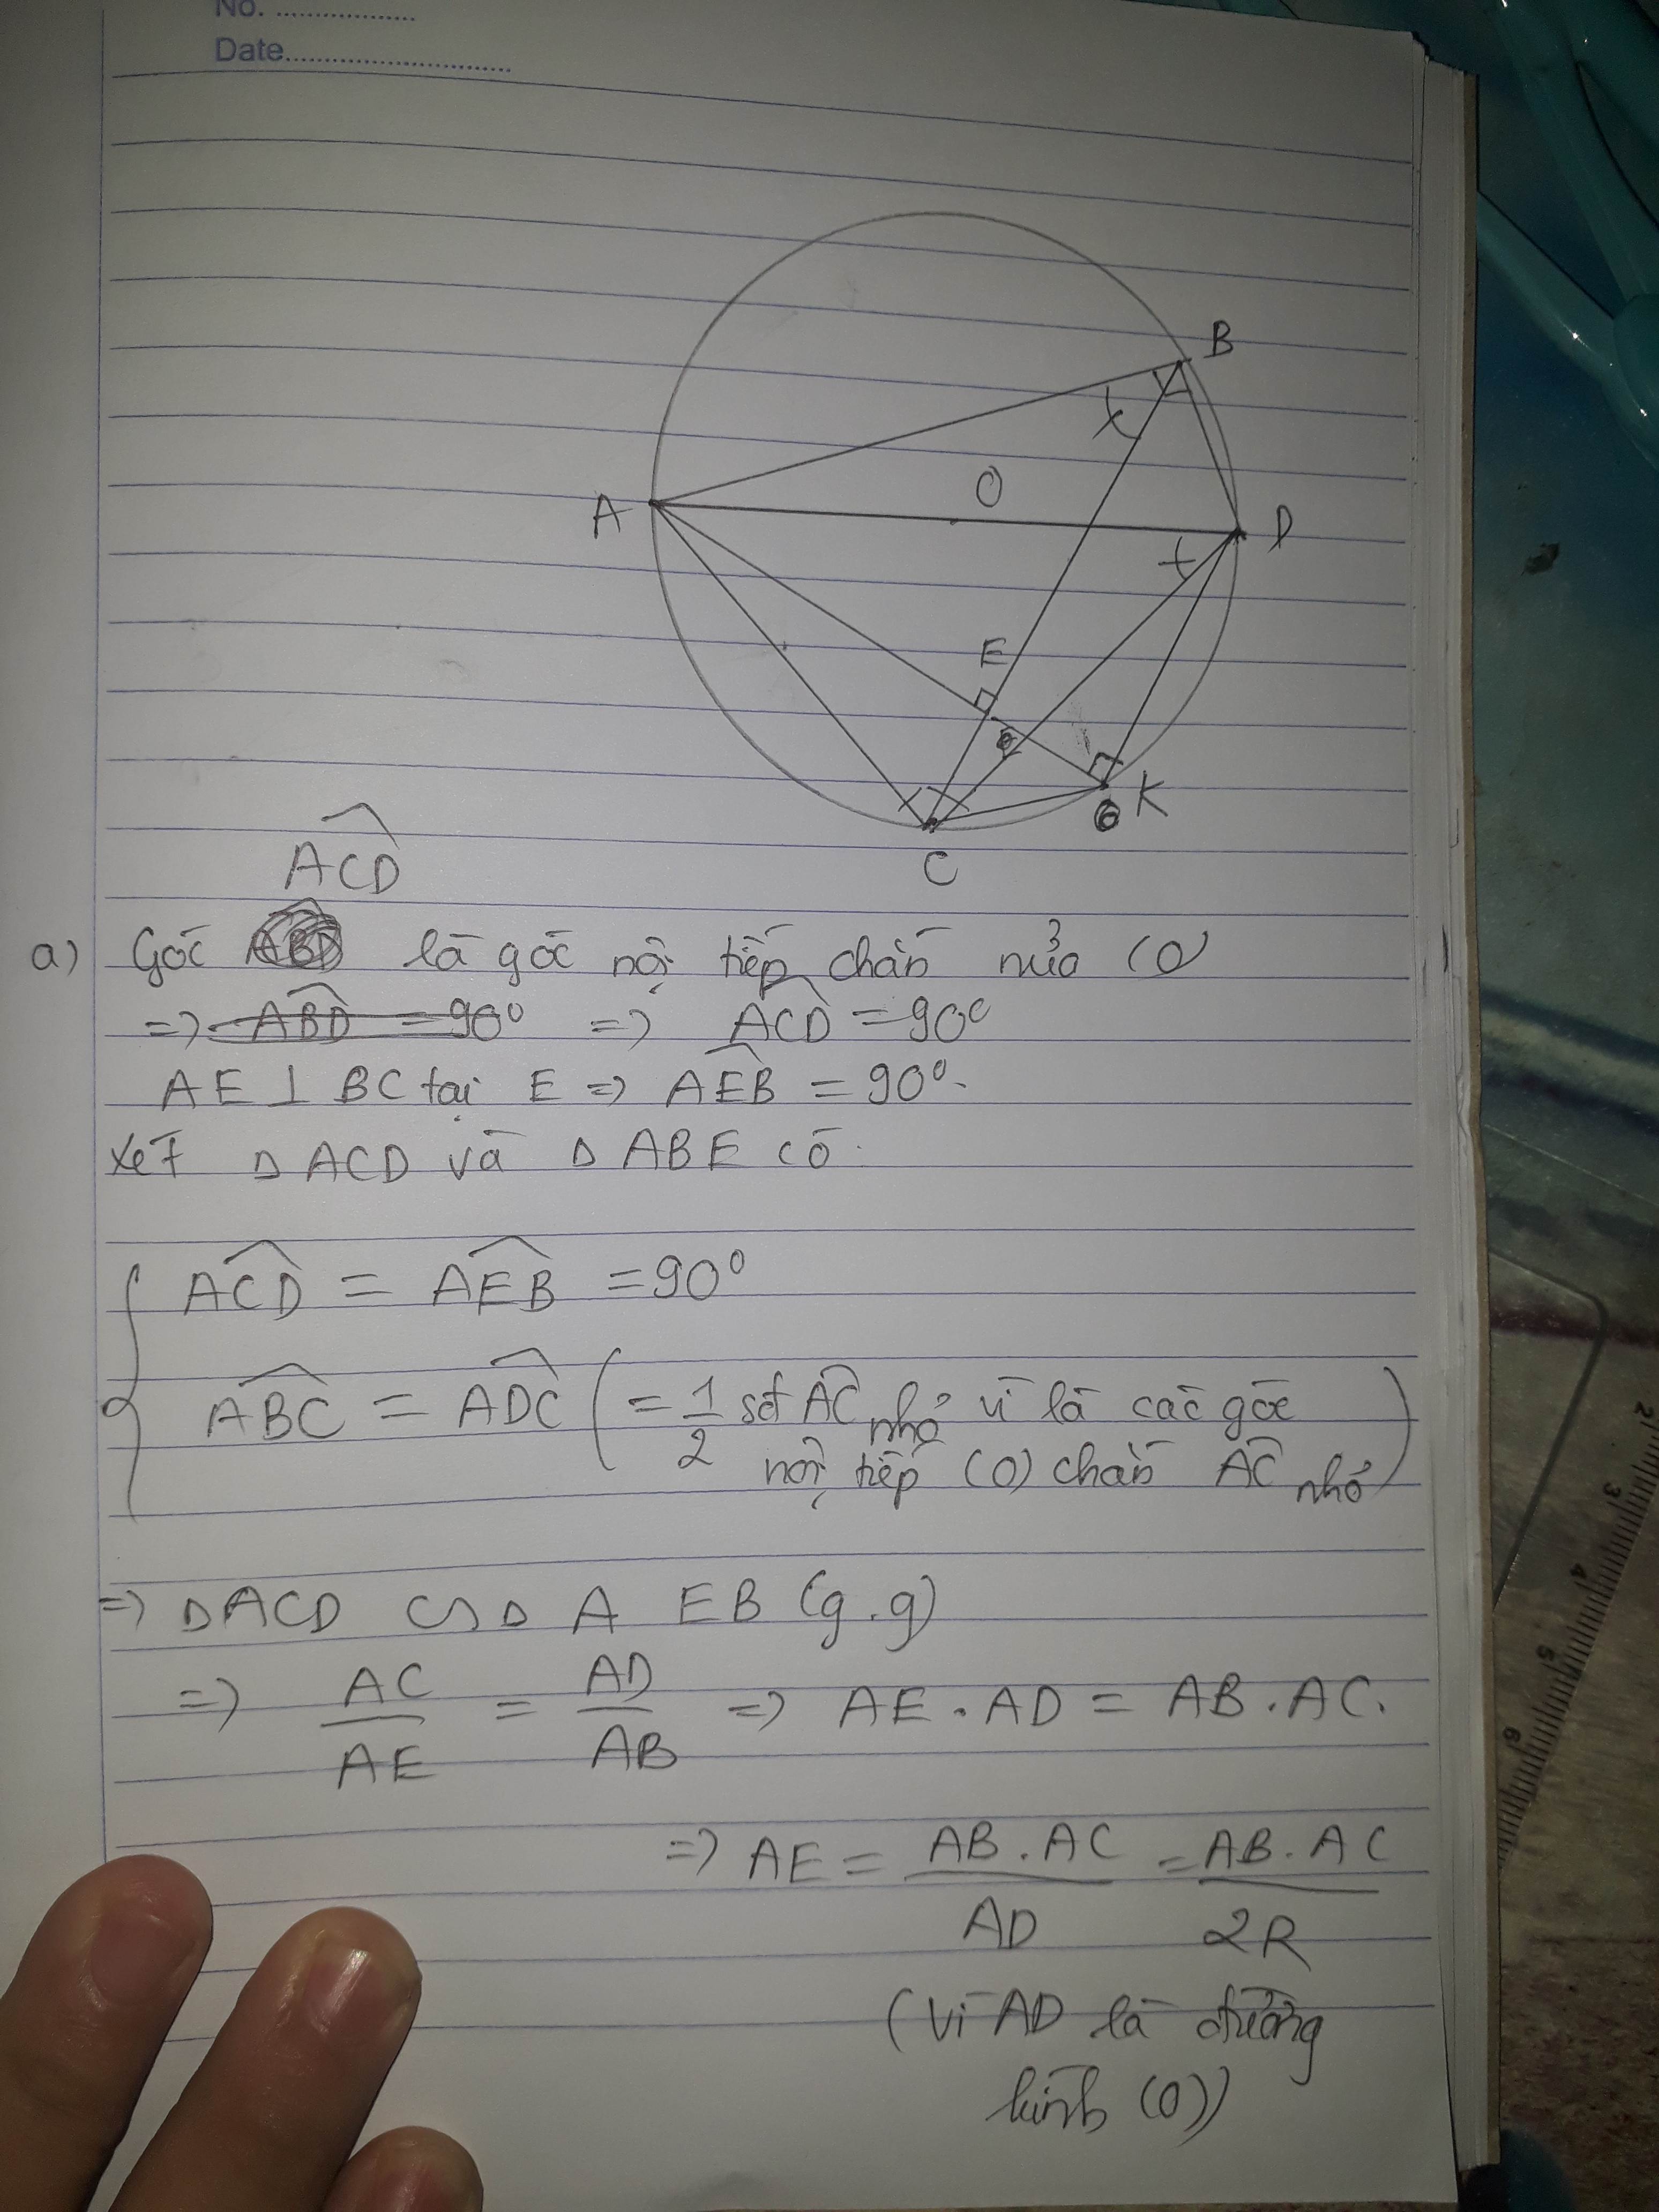 No. ..................
Date..............................
B
O
A
D
E
K
C
ACD
a) Góc là góc nội tiếp chắn nửa (O)
=> ABD = 90⁰ => ACD = 90⁰
AE ⊥ BC tại E => AEB = 90⁰.
Xét Δ ACD và Δ ABE có:
ACD = AEB = 90⁰
ABC = ADC (= 1/2 sđ AC nhỏ vì là các góc
nội tiếp (O) chắn AC nhỏ)
=> Δ ACD ∽ Δ A EB (g.g)
=> AC/AE = AD/AB => AE . AD = AB . AC.
=> AE = AB . AC/AD = AB . AC/2R
(Vì AD là đường
kính (O))
2
3
4
5
6